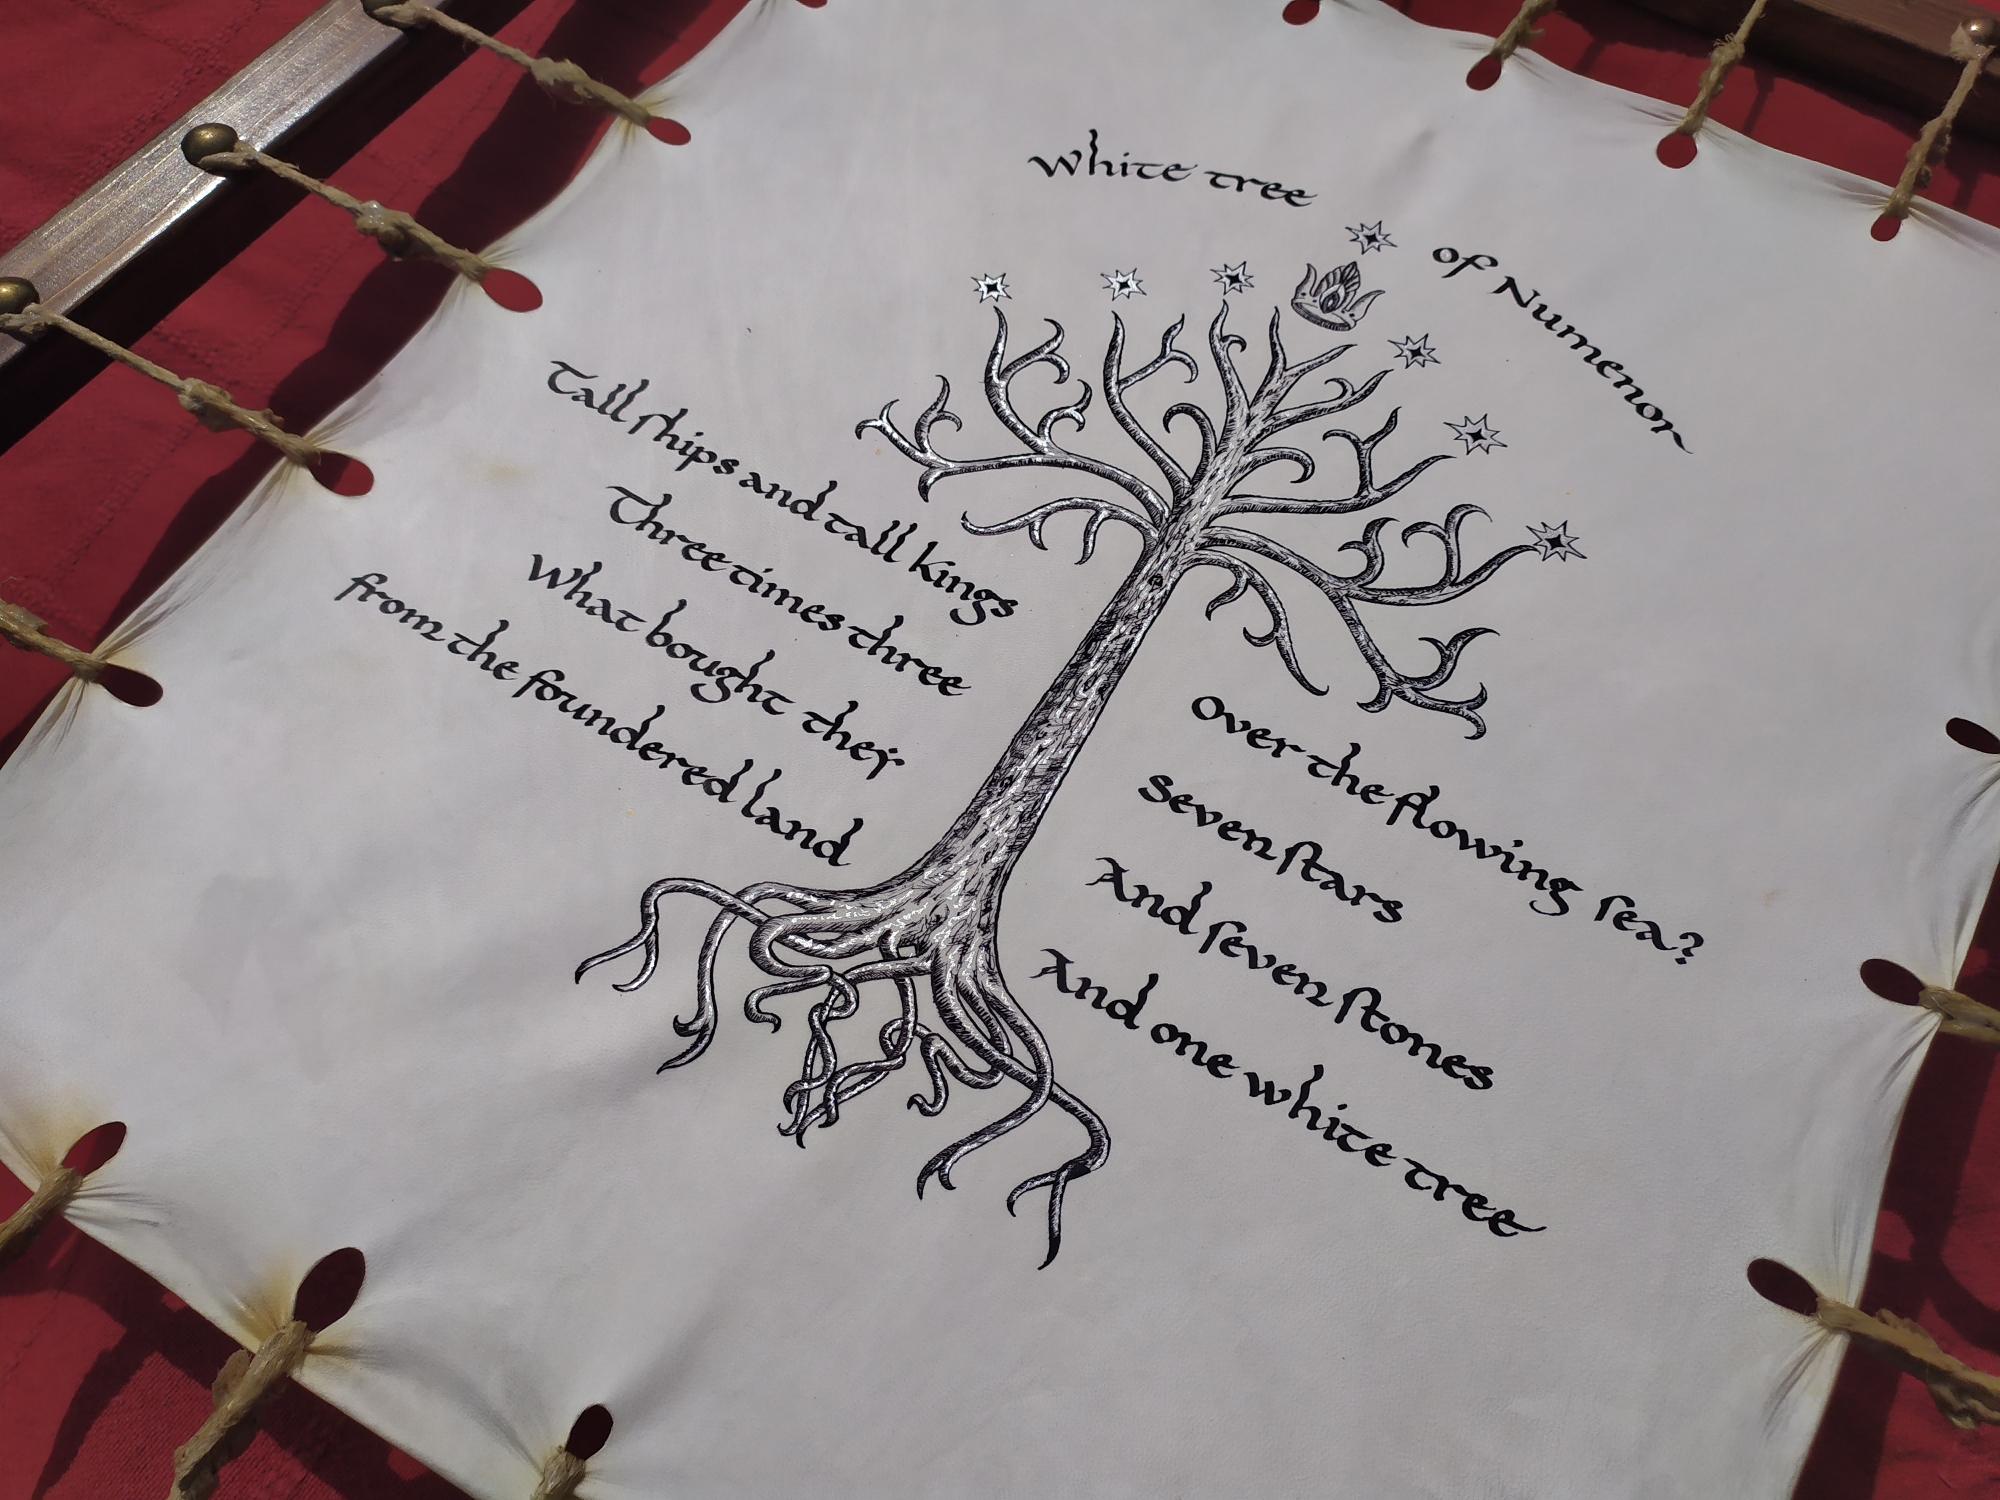 White tree of Numenor
Tall ſhips and tall kings
Three times three
What bought they
from the foundered land
Over the flowing ſea?
Seven ſtars
And ſeven ſtones
And one white tree